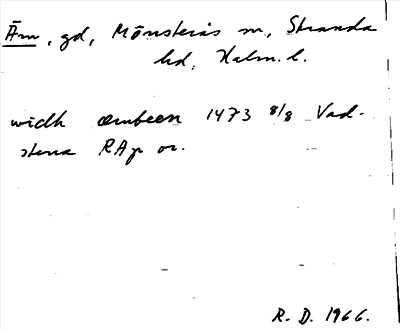 Äm, gd, Mönsterås sn, Stranda
hd, Kalm. l.
widh æmbeen 1473 8/8 Vad-
stena RAp or.
R. D. 1966.